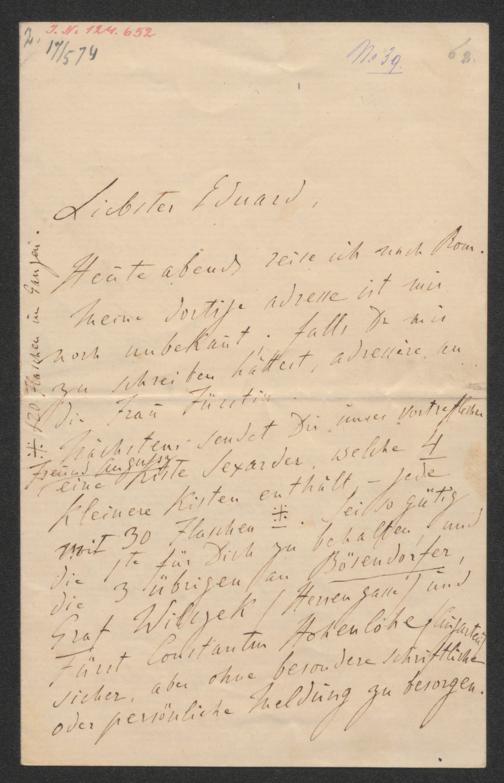 2. J. N. 124.652
17/5 74
No 39.
62.
Liebster Eduard,
Heute abends reise ich nach Rom.
Meine dortige adresse ist mir
noch unbekannt; falls Du mir
zu schreiben hättest, adressire an
die Frau Fürstin.
Nächstens sendet Dir unser vortrefflicher
Freund Augusz
eine Kiste Sexarder, welche 4
kleinere Kisten enthält, – jede
mit 30 Flaschen ⁜. Sei so gütig
die 1te für Dich zu behalten, und
die 3 übrigen an Bösendorfer,
Graf Wilczek (Herrengasse) und
Fürst Constantin Hohenlohe (Augarten)
sicher, aber ohne besondere schriftliche
oder persönliche Meldung zu besorgen.
⁜ 120 Flaschen im Ganzen.